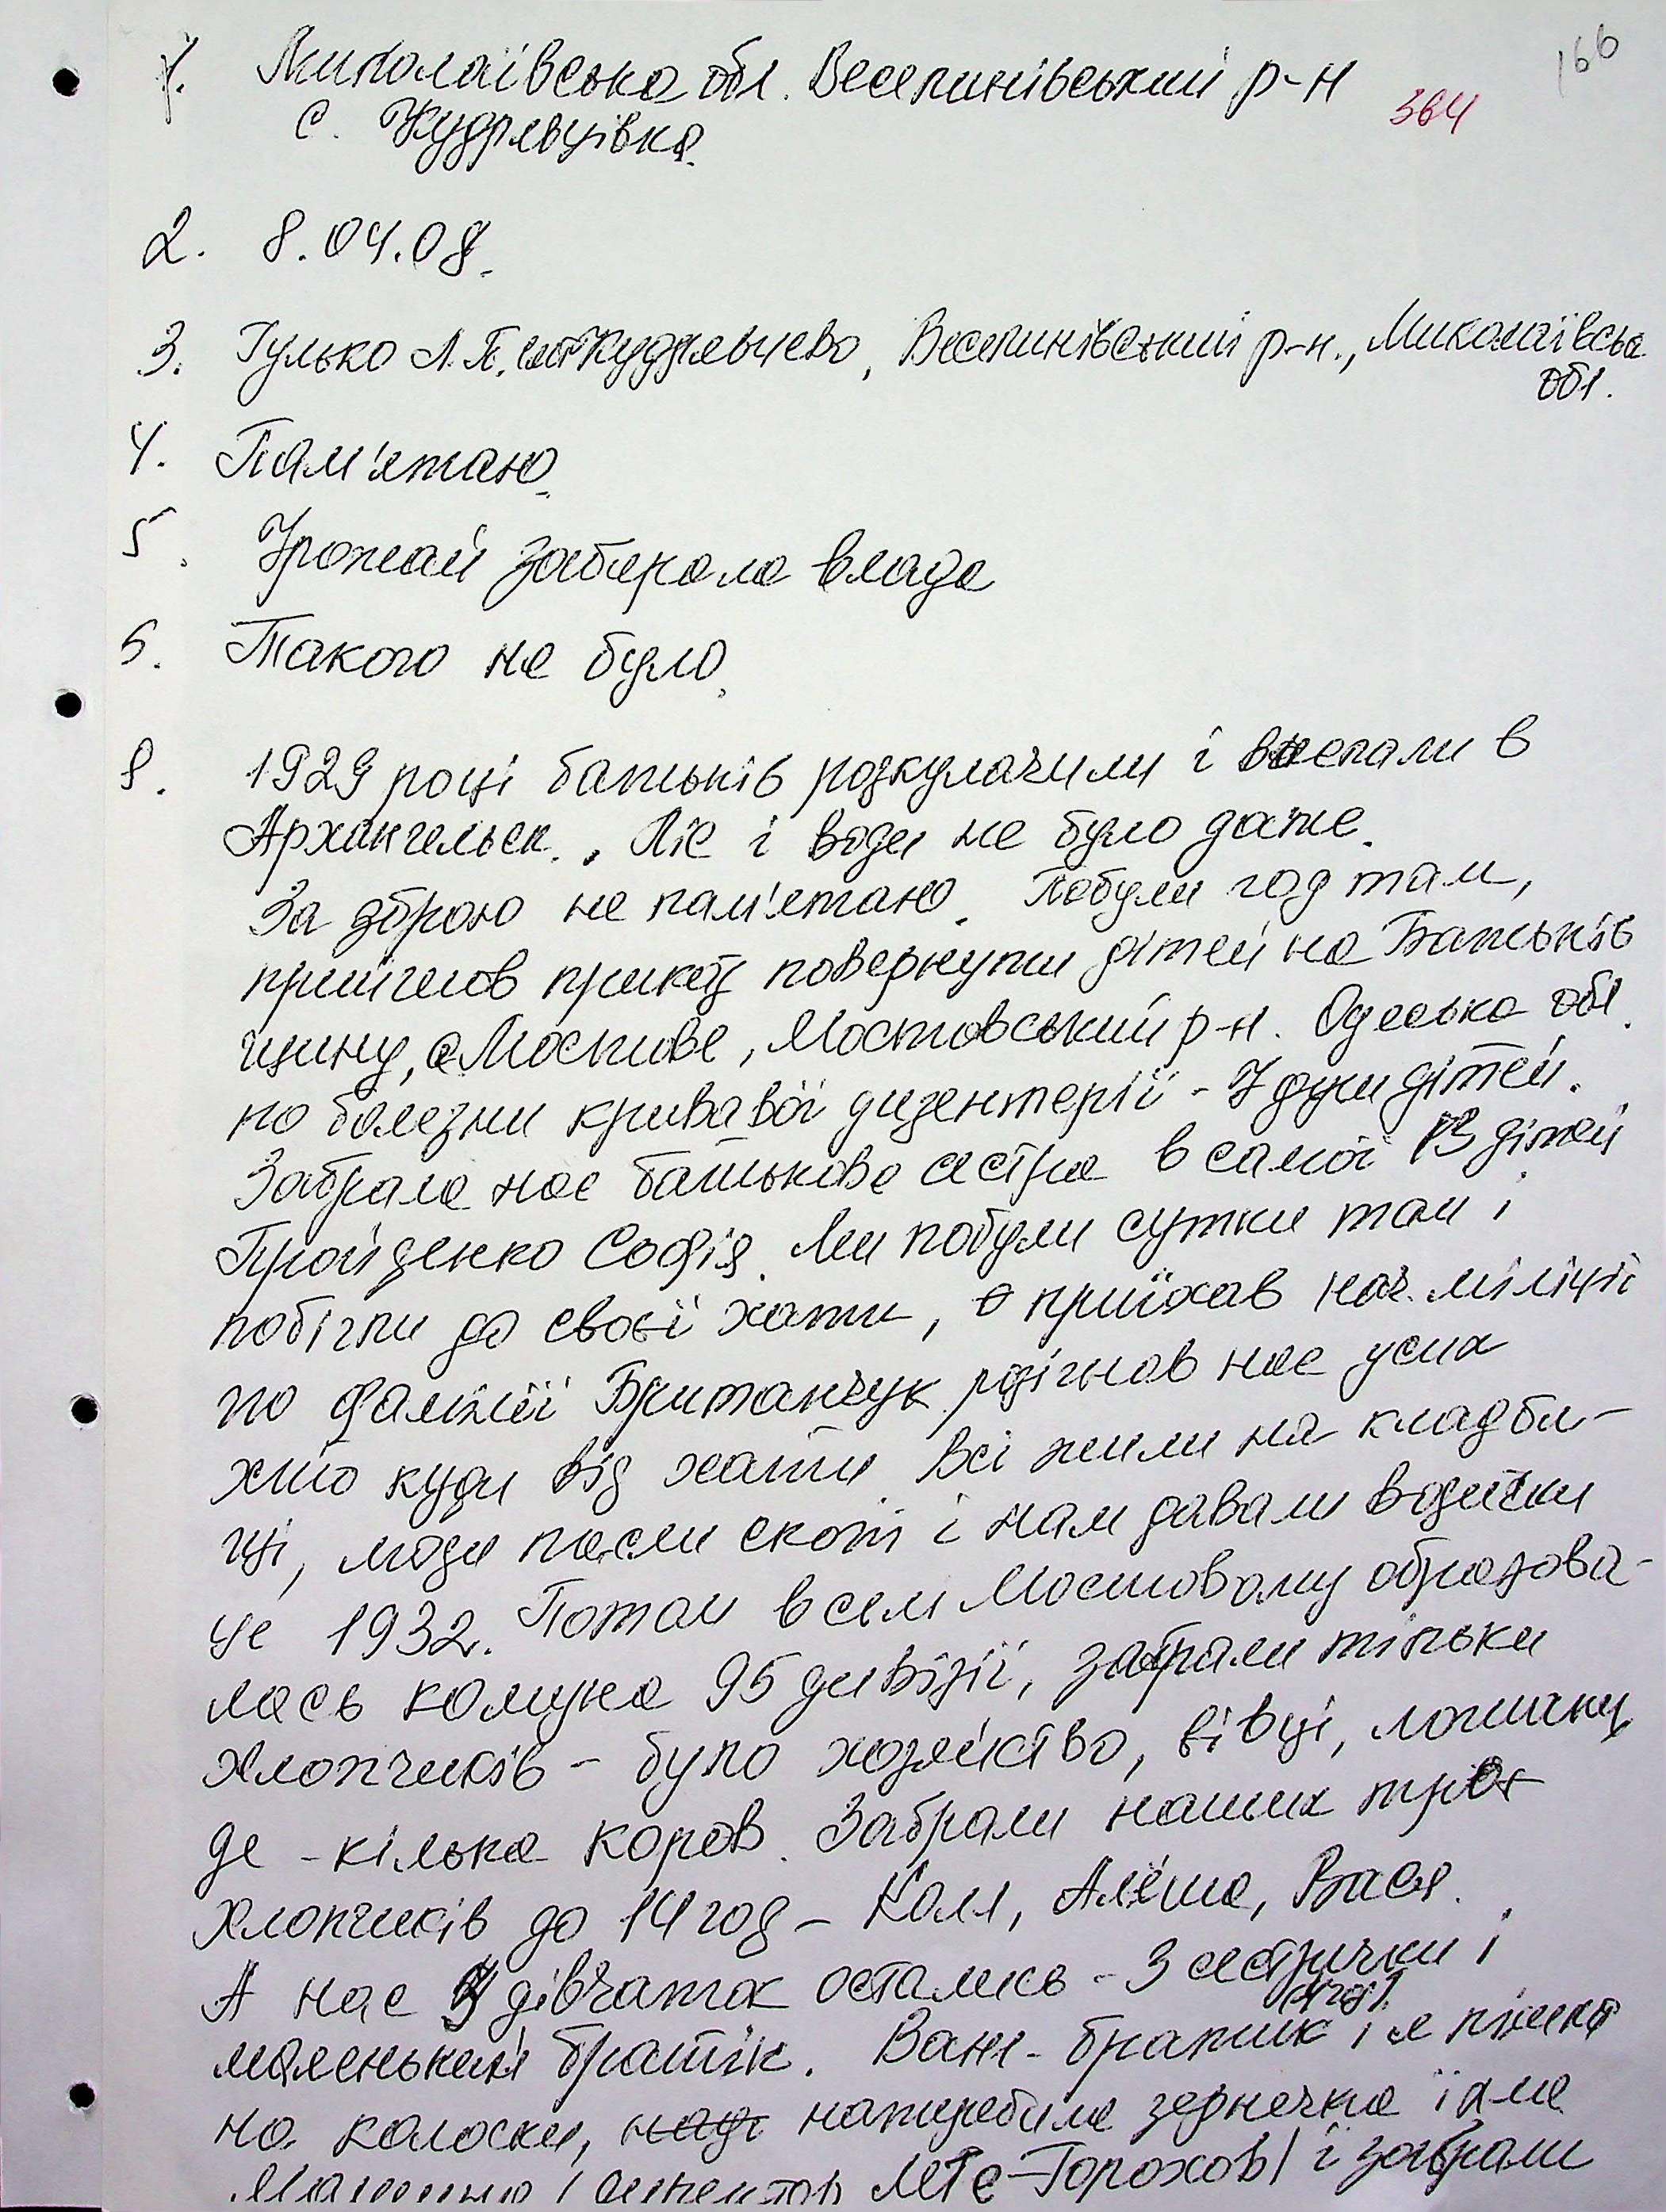 166
364
1. Миколаївська обл. Веселинівський р-н
с. Кудрявцівка.
2. 8.04.08.
3. Гулько Л.П. Кудрявцево, Веселинівський р-н., Миколаївська
обл.
4. Пам'ятаю.
5. Урожай забирала влада
6. Такого не було.
8. 1929 році батьків розкулачили і вислали в
Архангельск. Ліс і води не було даже.
За зброю не пам'ятаю. Побули год там,
прийшов приказ повернути дітей на Батьків
щину, с Мостове, Мостовський р-н. Одеська обл.
по болезни кривавої дизентерії - 7 душ дітей.
Забрала нас батькова сестра в самої 13 дітей
Пройденко Софія. Ми побули сутки там і
побігли до своєї хати, а приїхав нач. міліції
по фамілії Британчук розігнав нас усих
хто куди від хати. Всі жили на кладби-
щі, люди пасли скот і нам давали водички
це 1932. Потом в селі Мостовому образова-
лась комуна 95 дивізії, забрали тільки
хлопчиків - було хозяйство, вівці, лошички,
де-кілька коров. Забрали наших трьох
хлопчиків до 14 год - Коля, Алёша, Вася.
А нас дівчаток остались - 3 сестрички і
маленький братік. Ваня - братик (4 год) і я пішла
на колоски, натеребила зернечка їхала
МТС - Горохов і забрали